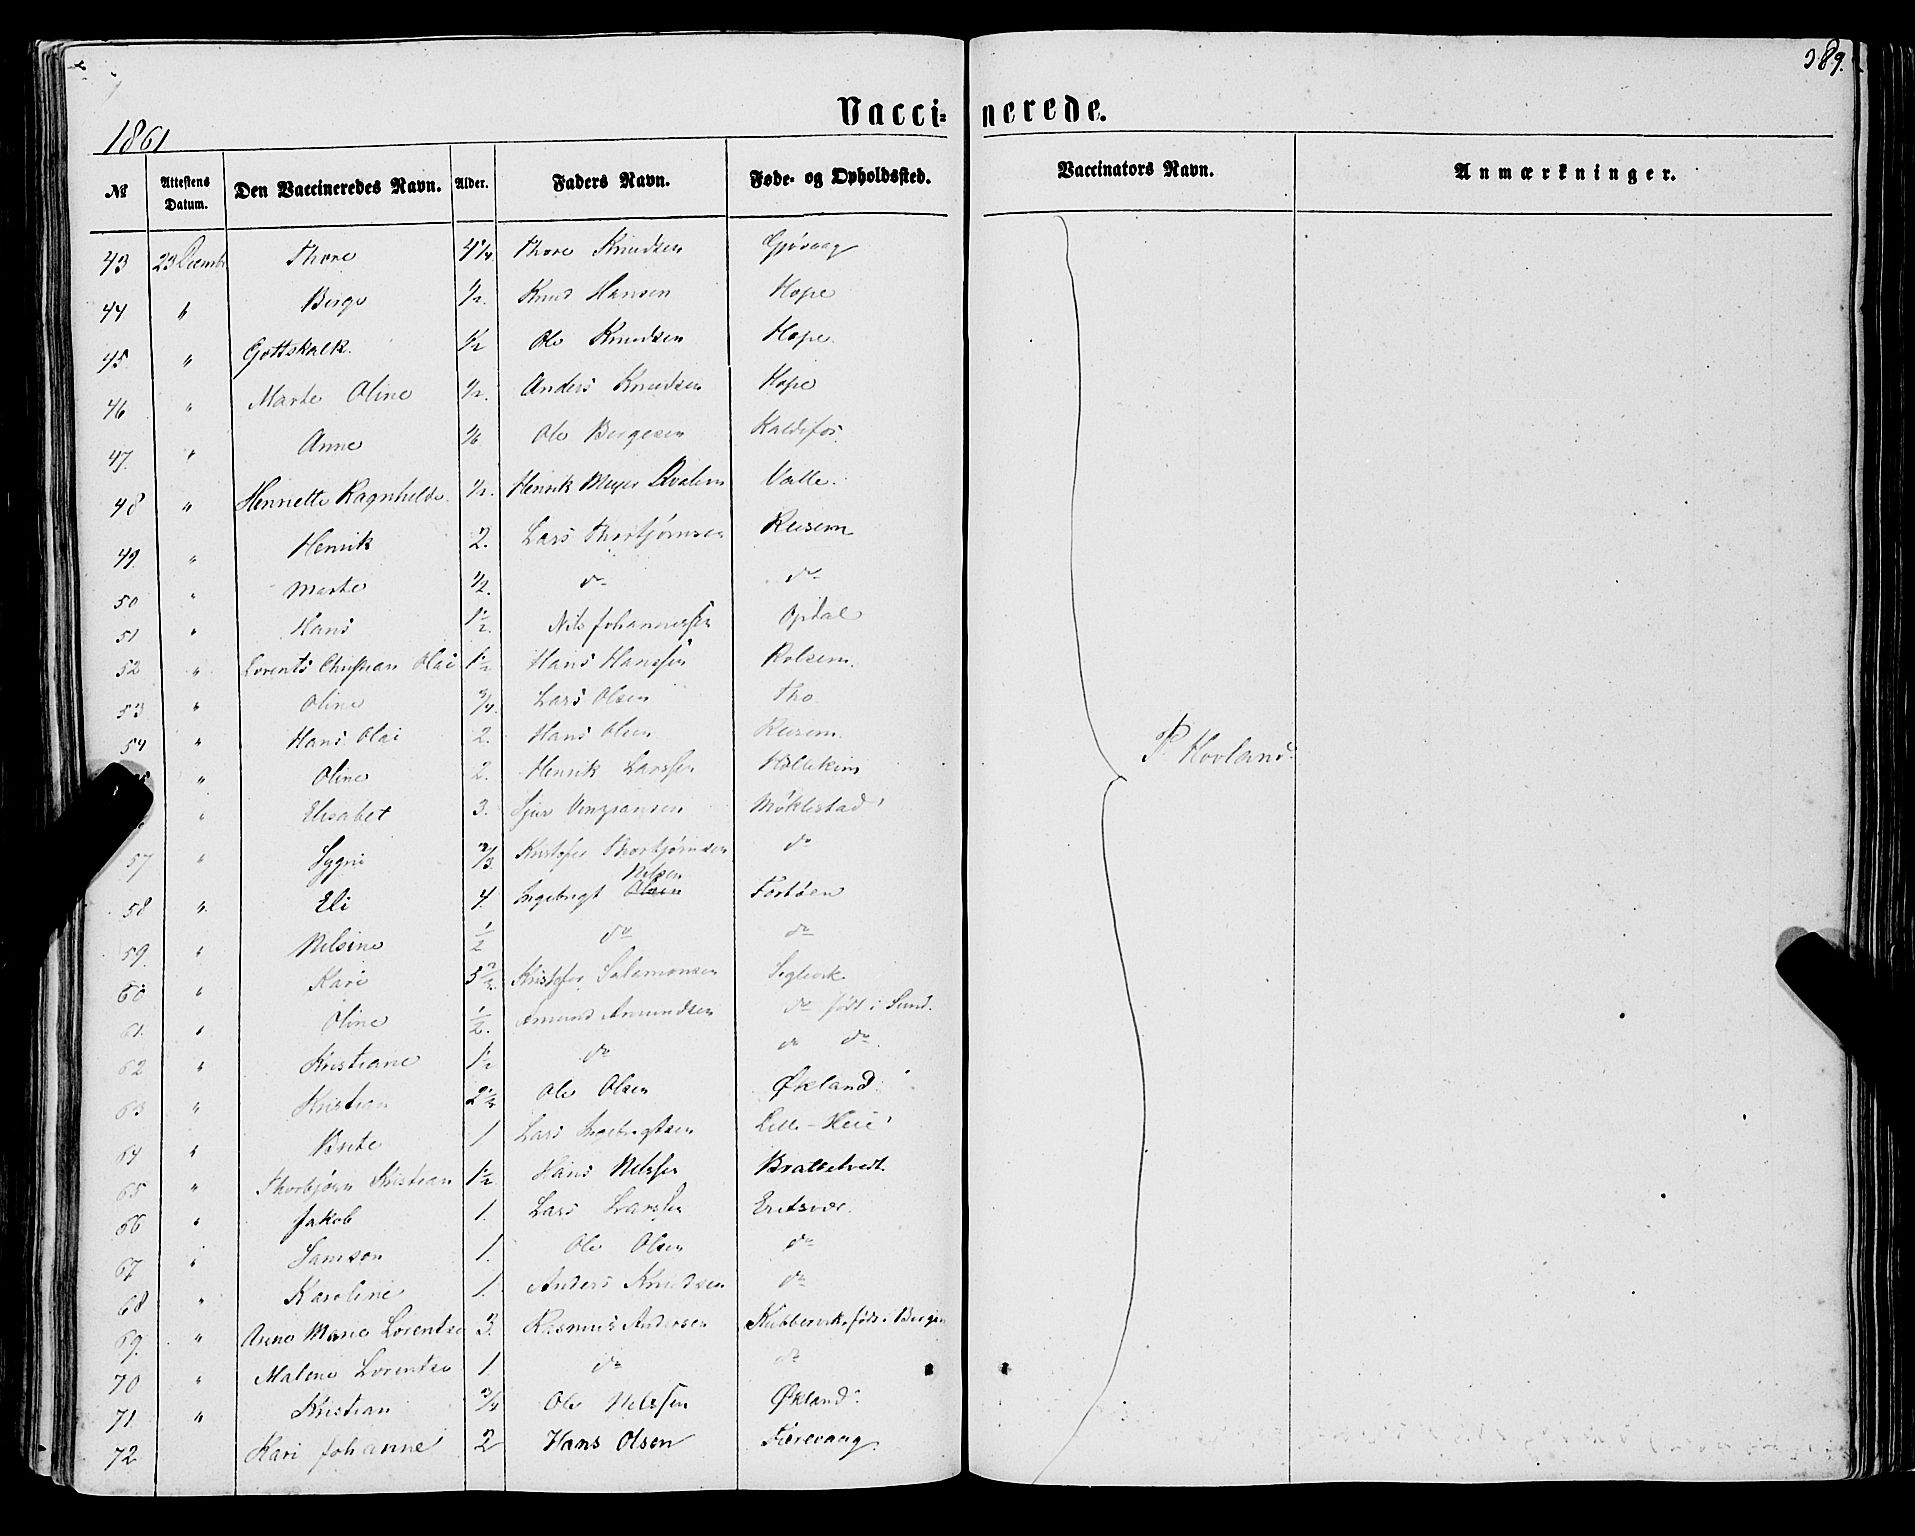 389.
Vacci- nerede.
1861
№ Attestens Datum. Den Vaccineredes Navn. Alder. Faders Navn. Føde- og Opholdssted. Vaccinators Navn. Anmærkninger.
43 23 Decembr Thore 4 1/4 Thore Knudsen
44 " Berge 1/2. Knud Hansen Hope
45 " Gottskalk. 1/2 Ole Knudsen Hope
46 " Marte Oline 1/2. Anders Knudsen Hope
47. " Anne 1/6 Ole Bergesen Kaldefos.
48 " Henriette Ragnhilde 1/2. Henrik Meyer Valle.
49. " Henrik 2. Lars Thorbjørnsen
50 " Marte 1/2. do do
51 " Hans 1 1/2. Nils Johannessen Opdal
52 " Lorents Christian Olai 1 1/2 Hans Hanssen Rolsem.
53 " Oline 3/4. Lars Olsen Tho
54 " Hans Olai 2. Hans Olsen
" Oline 2. Henrik Larssen
" Elisabet 3. Sjur Møklestad
57 " Sygni 2/3. Kristofer Thorbjørnsen do
Nilsen
58 " Eli 4. Ingebrigt Olsen
59. " Nilsine 1/2 do do
60 " Kari 5 1/2. Kristofer Salamonsen
61. " Oline 1/2. Amund Amundsen do født i Sund.
62 " Kristiane 1 1/2 do do do.
63 " Kristian 2 1/2 Ole Olsen Økland
64 " Brite 1 Lars Ingebrigtsen Lille-Heie
65 " Thorbjørn Kristian 1 1/2. Hans Nilssen
66 " Jakob 1. Lars Larssen
67 " Samson 1. Ole Olsen do
68 " Karoline 1. Anders Knudsen do
69. " Anne Marie Lorentse 3. Rasmus Andersen Kubbervik født i Bergen
70 " Malene Lorentse 1 do do
71 " Kristian 3/4 Ole Nilssen Økland.
72 Kari Johanne 2 Hans Olsen Færevaag.
P. Hovland.